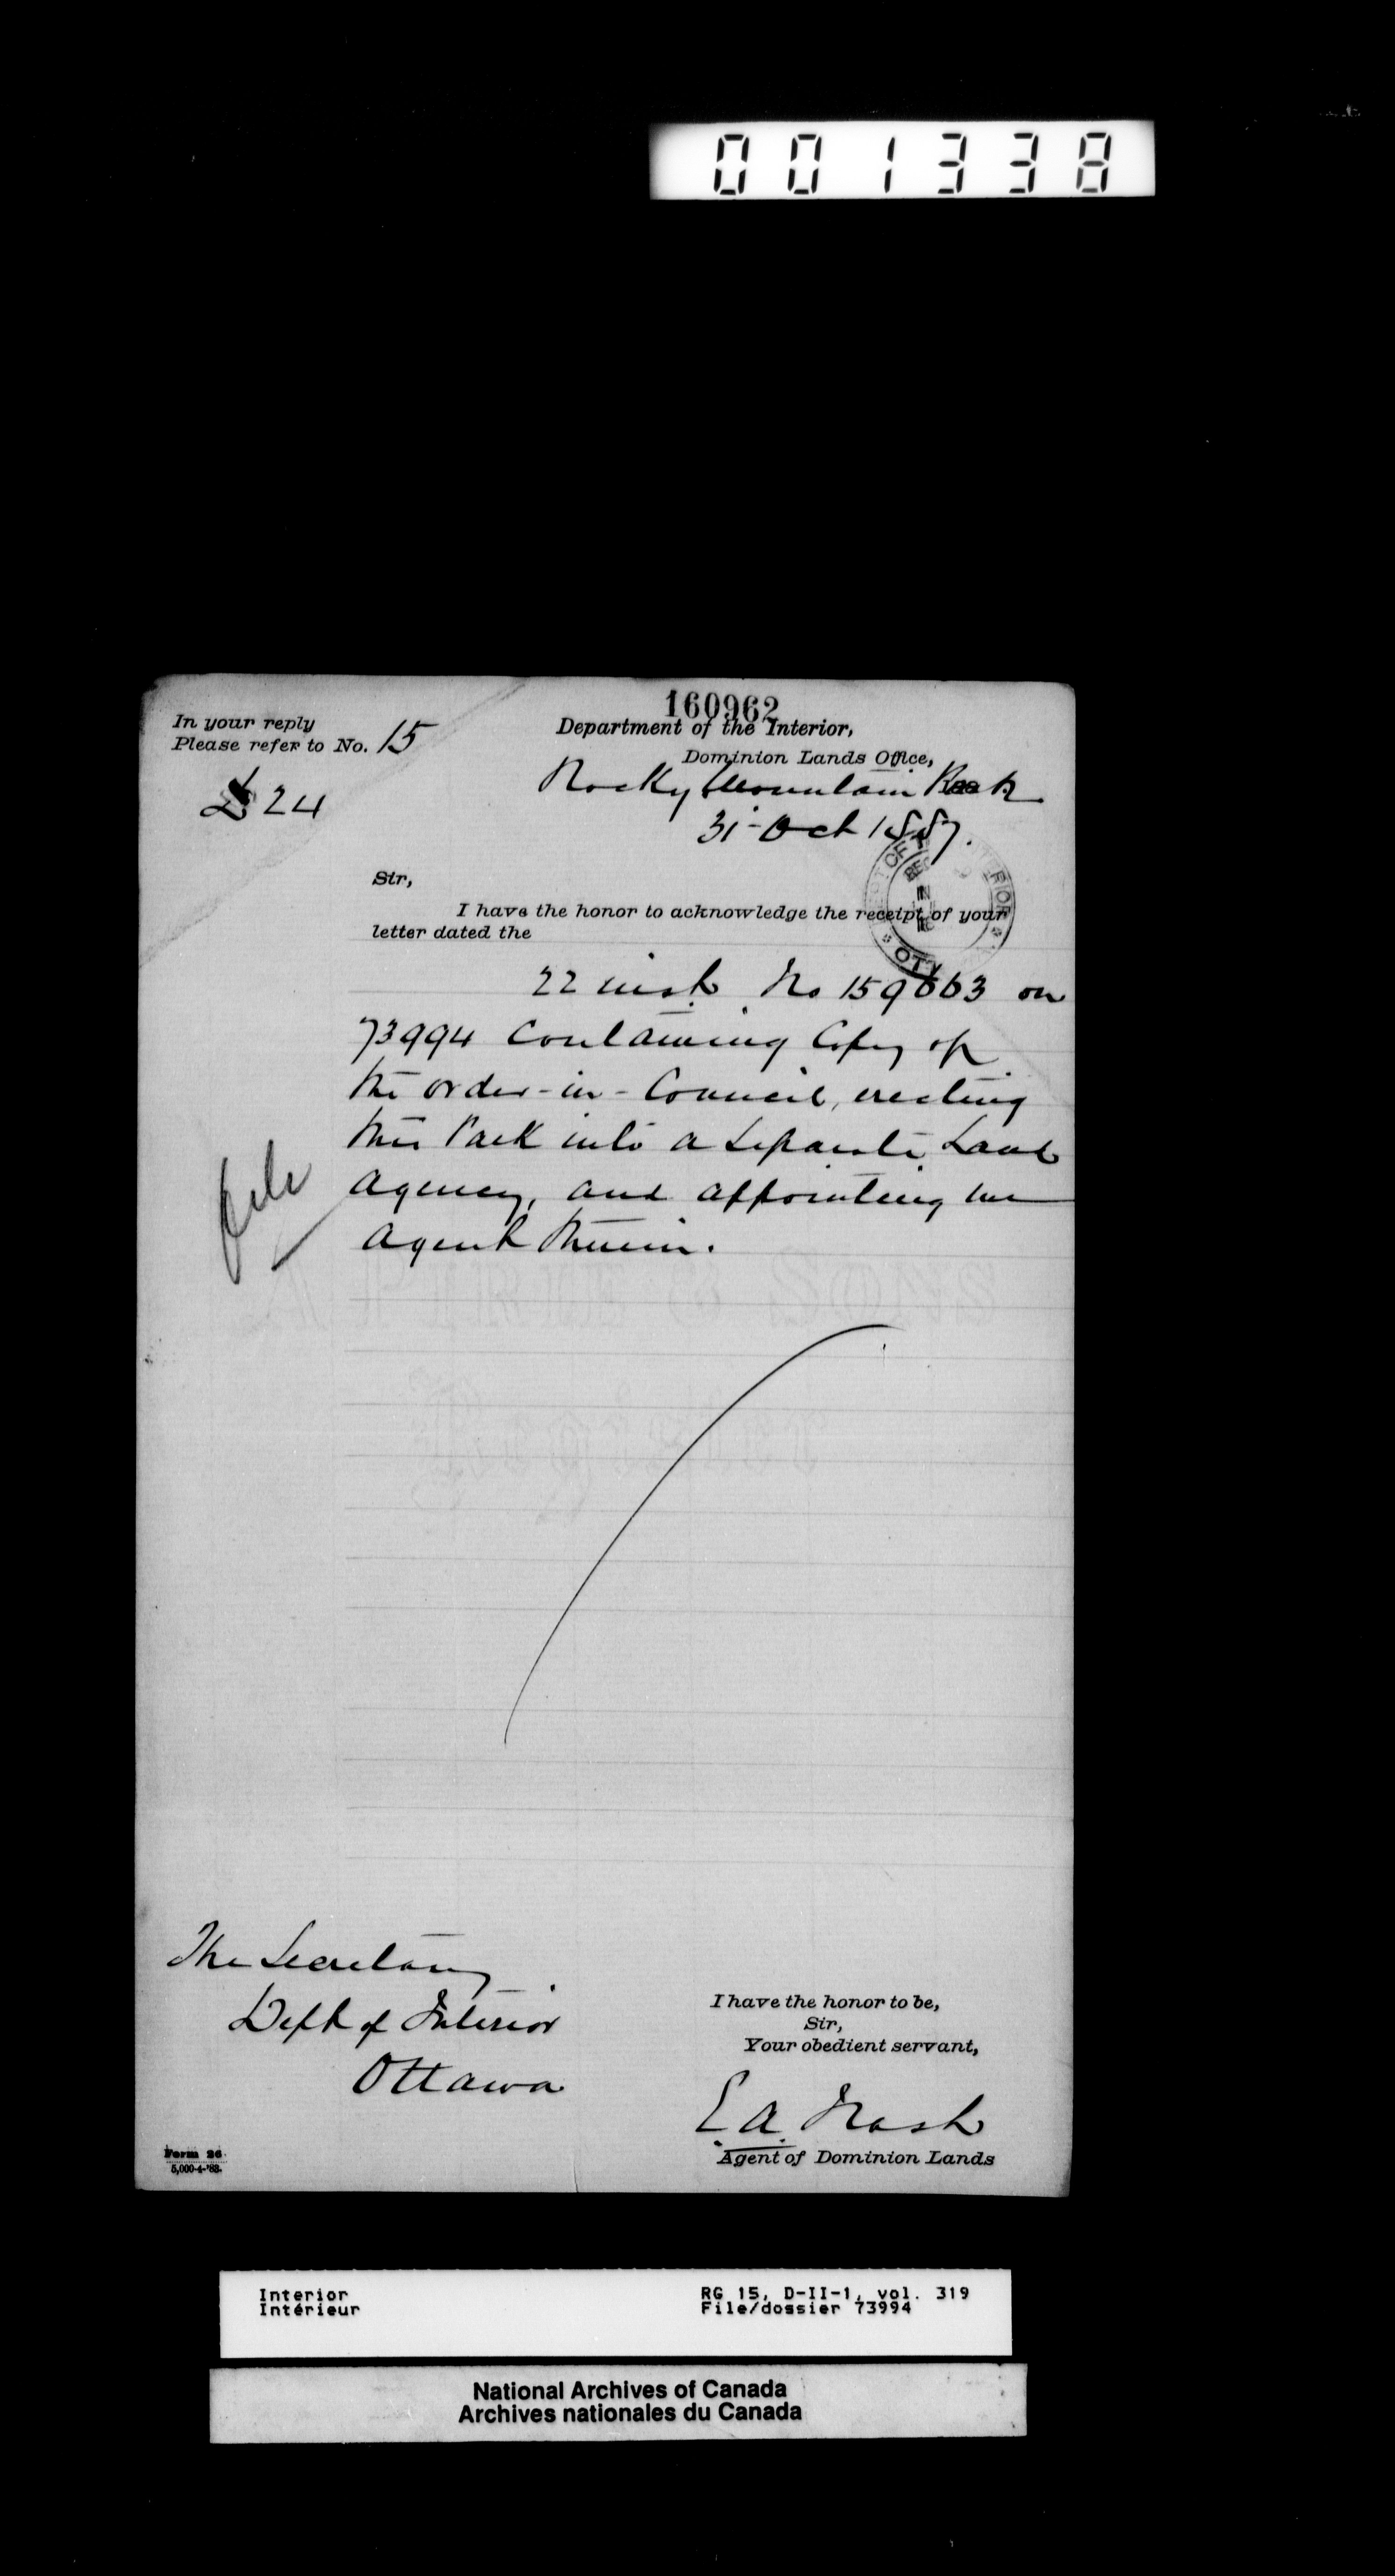 001338
160962
In your reply
Please refer to No. 15
Department of the Interior,
Dominion Lands Office,
Rocky Mountain Park
31 - Oct 1887.
24
Sir,
I have the honor to acknowledge the receipt of your
letter dated the
22 inst No 159663 on
73994 Containing Copy of
the order-in-Council, erecting
this Park into a Separate Land
Agency, and appointing me
Agent therein.
File
The Secretary
Dept of Interior
Ottawa
I have the honor to be,
Sir,
Your obedient servant,
E A Nash
Agent of Dominion Lands
Form 26
5,000-4-'83.
Interior
Intérieur
RG 15, D-II-1, vol. 319
File/dossier 73994
National Archives of Canada
Archives nationales du Canada